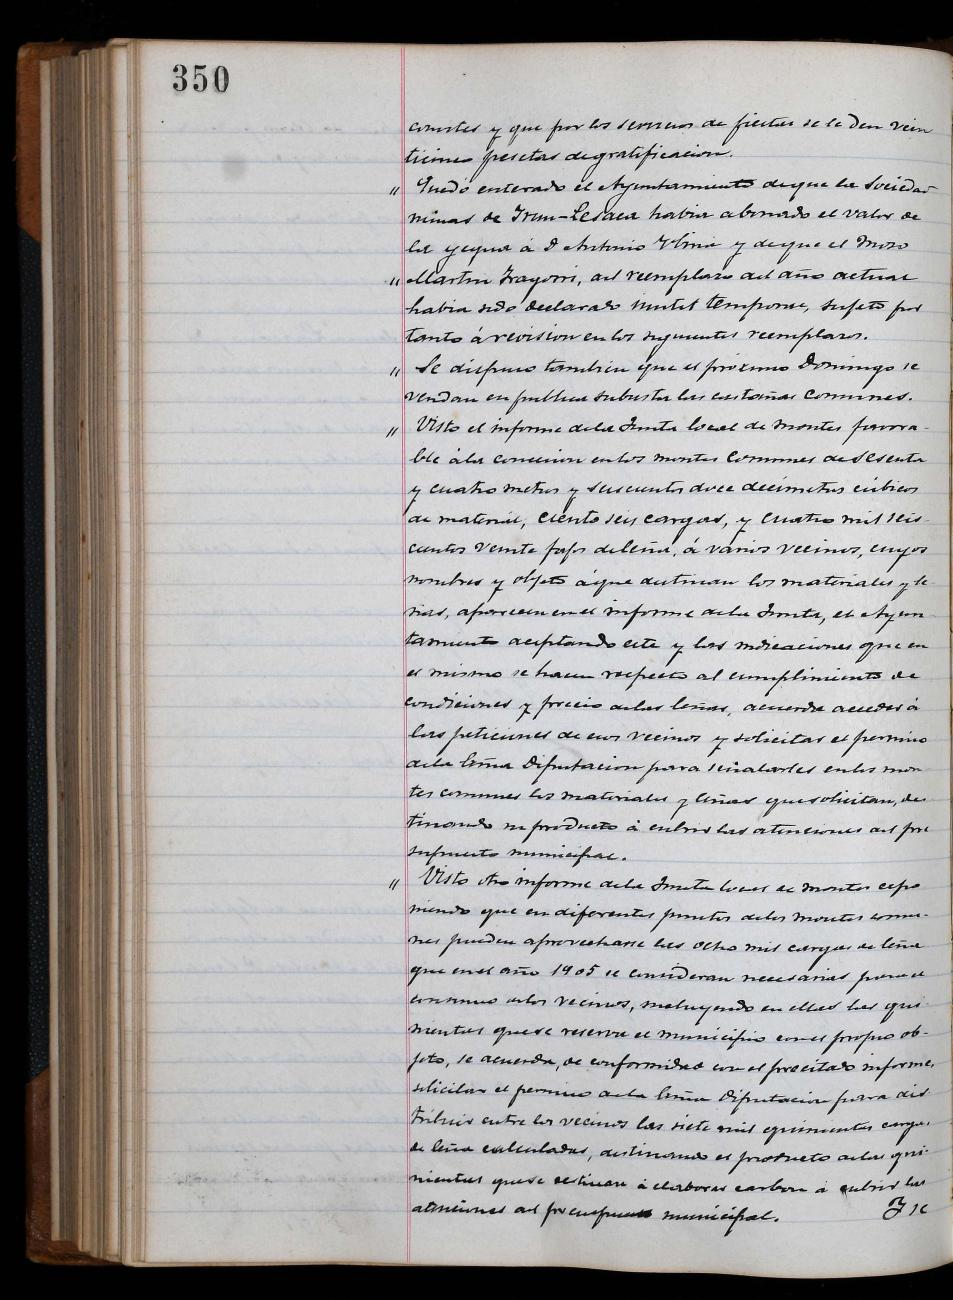 350
y que por los servicios de fiestas se le den vein
ticinco pesetas de gratificacion.
" Quedó enterado el Ayuntamiento de que la Sociedad
minas de Irun-Lesaca habia abonado el valor de
la yegua á D Antonio y de que el Mozo
" Martin Irazoqui, del reemplazo del año actual
habia sido declarado inutil temporal, sujeto por
tanto á revision en los siguientes reemplazos.
" Se dispuso tambien que el próximo Domingo se
vendan en publica subasta las castañas comunes.
" Visto el informe de la Junta local de montes favora-
ble á la concesion en los montes comunes de sesenta
y cuatro metros y seiscientos doce decimetros cúbicos
de material, ciento seis cargas, y cuatro mil seis-
cientos veinte fajos de leña, á varios vecinos, cuyos
nombres y objeto á que destinan los materiales y le-
ñas, aparecen en el informe de la Junta, el Ayun-
tamiento aceptando este y las indicaciones que en
el mismo se hacen respecto al cumplimiento de
condiciones y precio de las leñas, acuerda acceder á
las peticiones de esos vecinos y solicitar el permiso
de la Excma Diputacion para señalarles en los mon-
tes comunes los materiales y leñas que solicitan, des
tinando su producto á cubrir las atenciones del pre
supuesto municipal.
" Visto otro informe de la Junta local de montes expo
niendo que en diferentes puntos de los montes comu-
nes pueden aprovecharse las ocho mil cargas de leña
que en el año 1905 se consideran necesarias para el
consumo de los vecinos, incluyendo en ellas las qui-
nientas que se reserva el municipio con el propio ob-
jeto, se acuerda, de conformidad con el precitado informe,
solicitar el permiso de la Excma Diputacion para dis
tribuir entre los vecinos las siete mil quinientas cargas
de leña calculadas, destinando el producto de las qui-
nientas que se destinan á elaborar carbon á cubrir las
atenciones del presupuesto municipal. Y se